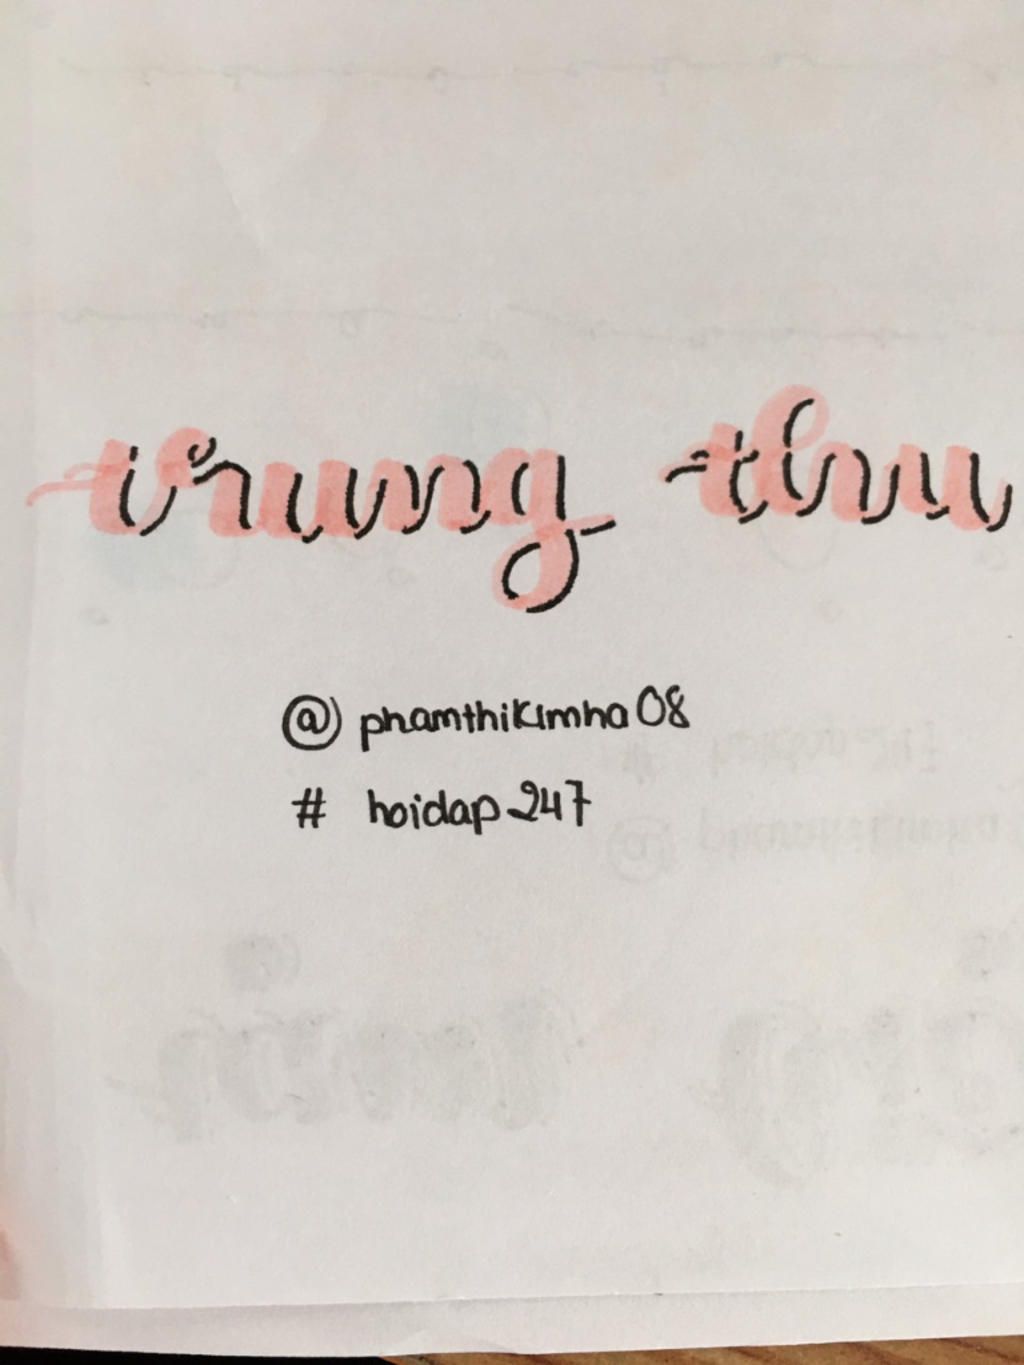 trung thu
@phamthikimha08
# hoidap247